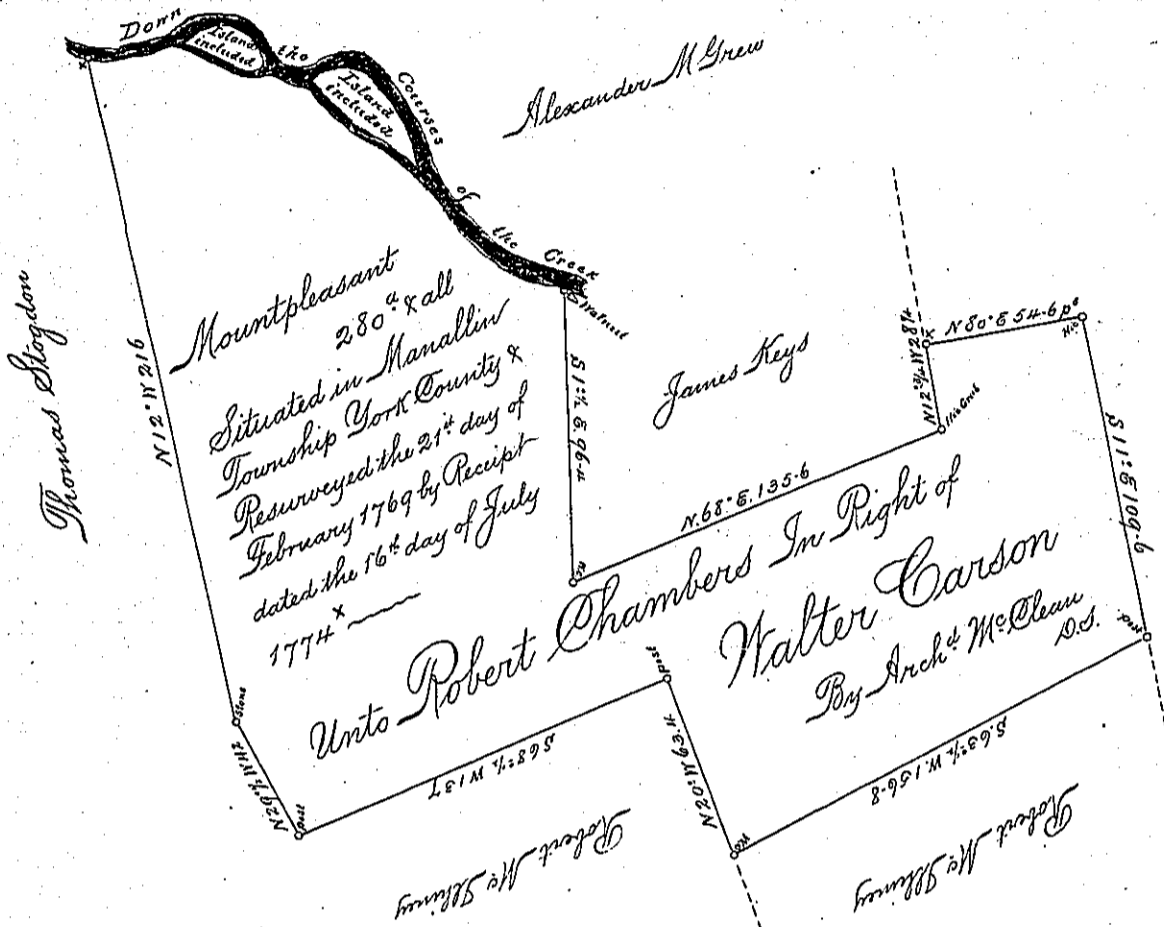 Down the Courses of the Creek
Island
included
Island
included
Alexander McGrew
Thomas Stogdon
Mountpleasant
280a & all
Situated in Manallin
Township York County &
Resurveyed the 21st day of
February 1769 by Receipt
dated the 16th day of July
1774 x
James Keys
Walnut
N12°W 216
S 1°½ E 96-4
N12°¾ W 28¼
X
N 80° E 54-6 ps
S 11° E 109-6
N. 68° E. 135-6
Unto Robert Chambers In Right of
Walter Carson
By Archd McClean
D.S.
Stone
N29½ W 42
post
S68°½ W 137
post
N20°W 63.4
S.63°½ W. 156-8
post
Robert McIlhiney
Robert McIlhiney